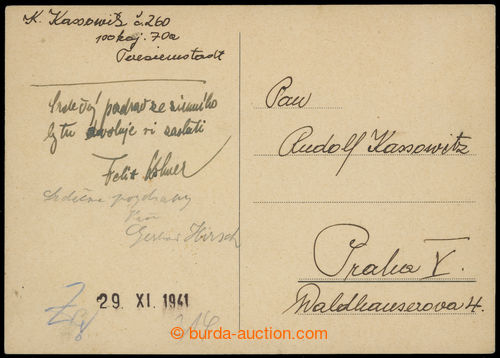 K. Kassowitz č. 260
pokoj. 70a
Teresienstadt
Srdečný pozdrav ze zimního
bytu dovoluje si zaslati
Felix
Srdečné pozdravy
Hirsch
29. XI. 1941
Pan
Rudolf Kassowitz
Praha V.
Waldhauserova 4.
© burda-auction.com